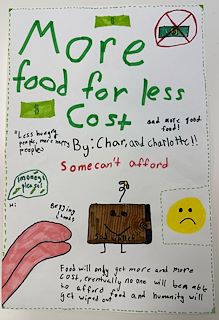 More
food for less
Cost
and more good
food!
"Less hungry
people, more happy
people"
By: Char, and charlotte!!
Some can't afford
money
please!
Hi
Begging
hands
Food will only get more and more
cost, eventually no one will be able
to afford food and humanity will
get wiped out